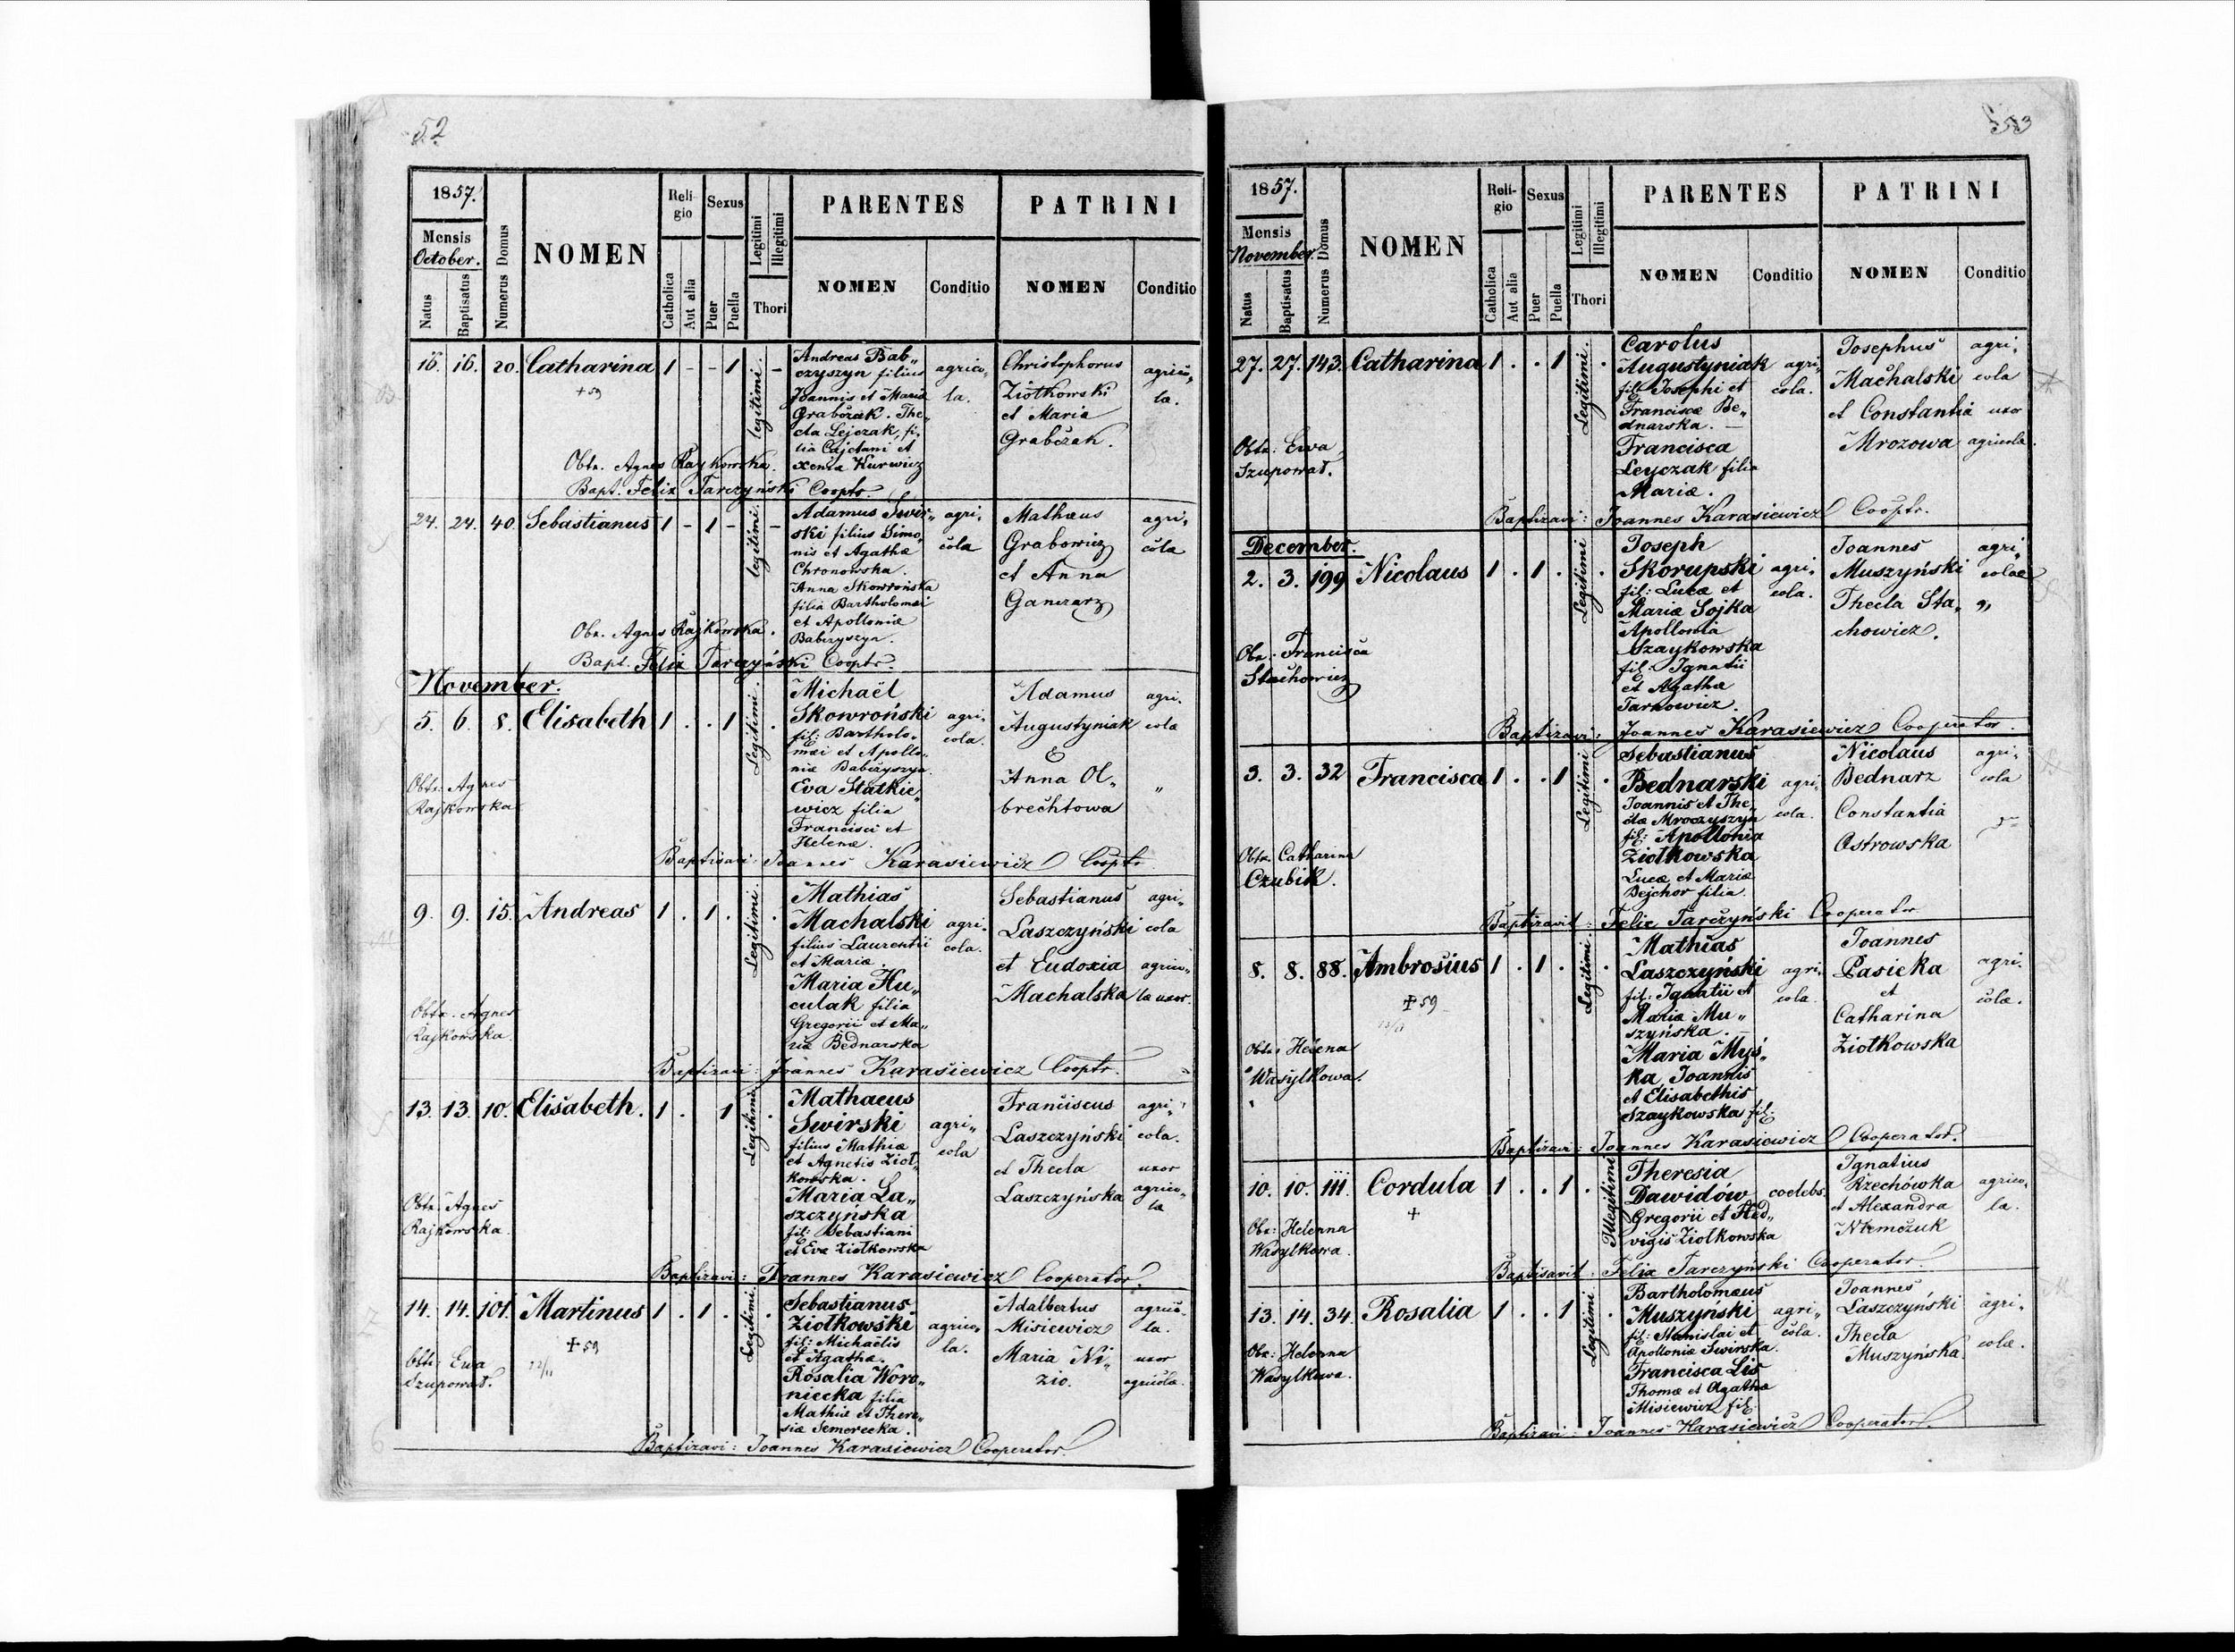 52
1857.
Mensis
October.
Natus
Baptisatus
Numerus Domus
NOMEN
Religio
Catholica
Aut alia
Sexus
Puer
Puella
Legitimi
Illegitimi
Thori
PARENTES
NOMEN
Conditio
PATRINI
NOMEN
Conditio
16. 16. 20. Catharina 1 - - 1 legitimi. -
+ 59
Andreas Bab„
czyszyn filius
Joannis et Maria
Grabczak. The„
cla Lejczak, fi„
lia Cajetani et
Xenia Kurwicz
agrico„
la.
Christophorus
Ziółkowski
et Maria
Grabczak.
agrico„
la.
Obtx. Agnes Raykowska.
Bapt. Felix Tarczyński Cooptr.
24. 24. 40. Sebastianus 1 - 1 - legitimi. -
Adamus Swir„
ski filius Simo„
nis et Agatha
Chronowska.
Anna Skowrońska
filia Bartholomæi
et Apolloniæ
Babczyszyn.
agri„
cola
Mathæus
Grabowicz
et Anna
Ganczarz
agri„
cola
Obx. Agnes Rajkowska.
Bapt. Felix Tarczyński Cooptr.
November.
5. 6. 8. Elisabeth 1 . . 1 Legitimi. .
Michaël
Skowroński
fil: Bartholo„
mæi et Apollo„
niæ Babczyszyn.
Eva Statkie„
wicz filia
Francisci et
Helenæ.
agri„
cola.
Adamus
Augustyniak
&
Anna Ol„
brechtowa
agri„
cola
„
Obtx: Agnes
Rajkowska
Baptisavi: Joannes Karasiewicz Cooptr
9. 9. 15. Andreas 1 . 1 . Legitimi. .
Mathias
Machalski
filius Laurentii
et Mariæ.
Maria Hu„
culak filia
Gregorii et Ma„
riæ Bednarska
agri„
cola.
Sebastianus
Laszczyński
et Eudoxia
Machalska
agri„
cola
agrico„
la uxor.
Obtx. Agnes
Rajkowska.
Baptizavi: Joannes Karasiewicz Cooptr.
13. 13. 10. Elisabeth. 1 . 1 Legitimi. .
Mathaeus
Swirski
filius Mathiæ
et Agnetis Ziół„
kowska.
Maria La„
szczyńska
fil: Sebastiani
et Eva Ziółkowska
agri„
cola
Franciscus
Laszczyński
et Thecla
Laszczyńska
agri„
cola.
uxor
agrico„
la
Obtx. Agnes
Rajkowska.
Baptizavi: Joannes Karasiewicz Cooperator.
14. 14. 101. Martinus 1 . 1 . Legitimi. .
+ 59
12/11
Sebastianus
Ziółkowski
fil: Michaëlis
et Agatha.
Rosalia Woro„
niecka filia
Mathiæ et There„
siæ Semerecka.
agrico„
la.
Adalbertus
Misiewicz
Maria Ni„
zio.
agrico„
la.
uxor
agricolæ.
Obtx: Ewa
Szupowal.
Baptizavi: Joannes Karasiewicz Cooperator.
53
1857.
Mensis
November.
Natus
Baptisatus
Numerus Domus
NOMEN
Religio
Catholica
Aut alia
Sexus
Puer
Puella
Legitimi
Illegitimi
Thori
PARENTES
NOMEN
Conditio
PATRINI
NOMEN
Conditio
27. 27. 143. Catharina 1 . . 1 Legitimi. .
Carolus
Augustyniak
fil: Josephi et
Franciscæ Be„
dnarska. —
Francisca
Leyczak filia
Mariæ.
agri„
cola.
Josephus
Machalski
et Constantia
Mrozowa
agri„
cola
uxor
agricola.
Obtx: Ewa
Szupowal.
Baptizavi: Joannes Karasiewicz Cooptr.
December.
2. 3. 199 Nicolaus 1 . 1 . Legitimi .
Joseph
Skorupski
fil: Lucæ et
Mariæ Sojka
Apollonia
Szaykowska
fil: Ignatii
et Agathæ
Tarnowicz.
agri„
cola.
Joannes
Muszyński
Thecla Sta„
chowicz.
agri„
colæ
„
Obx: Francisca
Stachowicz
Baptizavi: Joannes Karasiewicz Cooperator.
3. 3. 32 Francisca 1 . . 1 Legitimi .
Sebastianus
Bednarski
Joannis et The„
clæ Mroczyszyn
fil: Apollonia
Ziółkowska
Lucæ et Mariæ
Dejchor filia.
agri„
cola.
Nicolaus
Bednarz
Constantia
Ostrowska
agri„
cola
Obtx. Catharina
Czubik.
Baptizavit: Felix Tarczyński Cooperator
8. 8. 88. Ambrosius 1 . 1 . Legitimi. .
+ 59
Mathias
Laszczyński
fil: Ignatii et
Mariæ Mu„
szyńska. —
Maria Myś„
ka Joannis
et Elisabethis
Szaykowska fil:
agri„
cola
Joannes
Pasieka
et
Catharina
Ziółkowska
agri„
colæ.
Obtx: Helena
Wasylkowa.
Baptizavi: Joannes Karasiewicz Cooperator.
10. 10. 111. Cordula 1 . . 1 . Illegitimi
+
Theresia
Dawidów
Gregorii et Hed„
vigis Ziółkowska
coelebs.
Ignatius
Rzechówka
et Alexandra
Niemczuk
agrico„
la.
Obx: Helenna
Wasylkowa.
Baptisavit: Felix Tarczyński Cooperator.
13. 14. 34. Rosalia 1 . . 1 Legitimi. .
Bartholomæus
Muszyński
fil: Stanislai et
Apolloniæ Swirska.
Francisca Lis
Thomæ et Agathæ
Misiewicz fil:
agri„
cola.
Joannes
Laszczyński
Thecla
Muszyńska.
agri„
colæ.
Obx: Helenna
Wasylkowa.
Baptizavi: Joannes Karasiewicz Cooperator